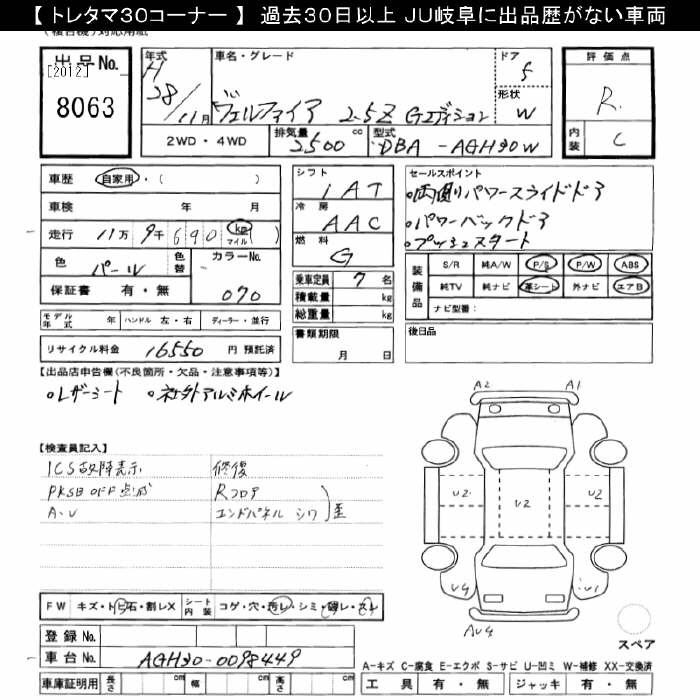 【 トレタマ30コーナー 】 過去30日以上 JU岐阜に出品歴がない車両
出品No.
[2012]
8063
年式
H
28/11月
車名・グレード
ヴェルファイア 2.5Z Gエディション
ドア
5
形状
W
2WD・4WD
排気量
2500 cc
型式
DBA-AGH30W
評価点
R
内装
C
車歴 自家用・( )
車検 年 月
走行 11万 9千 690 km マイル ( )
色 パール 色替 カラーNo.
070
保証書 有・無
モデル年式 年 ハンドル 左・右 ディーラー・並行
リサイクル料金 16550 円 預託済
シフト
IAT
冷房
AAC
燃料
G
乗車定員 7 名
積載量 kg
総重量 kg
書類期限
月 日
セールスポイント
・両側パワースライドドア
・パワーバックドア
・プッシュスタート
装備品
S/R 純A/W P/S P/W ABS
純TV 純ナビ 革シート 外ナビ エアB
ナビ型番:
後日品
【出品店申告欄(不良箇所・欠品・注意事項等)】
・レザーシート ・社外アルミホイール
【検査員記入】
ICS故障表示
PKSB OFF点滅
A・U
修復
Rフロア
エンドパネル シワ
歪
A2 A1
U2 U2 U2
U4 U1
AU4
スペア
FW キズ・トビ石・割レX
シート内装 コゲ・穴・汚レ・シミ・破レ・スレ
登録No.
車台No. AGH30-0098449
車庫証明用 長さ cm 幅 cm 高さ cm
A-キズ C-腐食 E-エクボ S-サビ U-凹ミ W-補修 XX-交換済
工具 有・無 ジャッキ 有・無